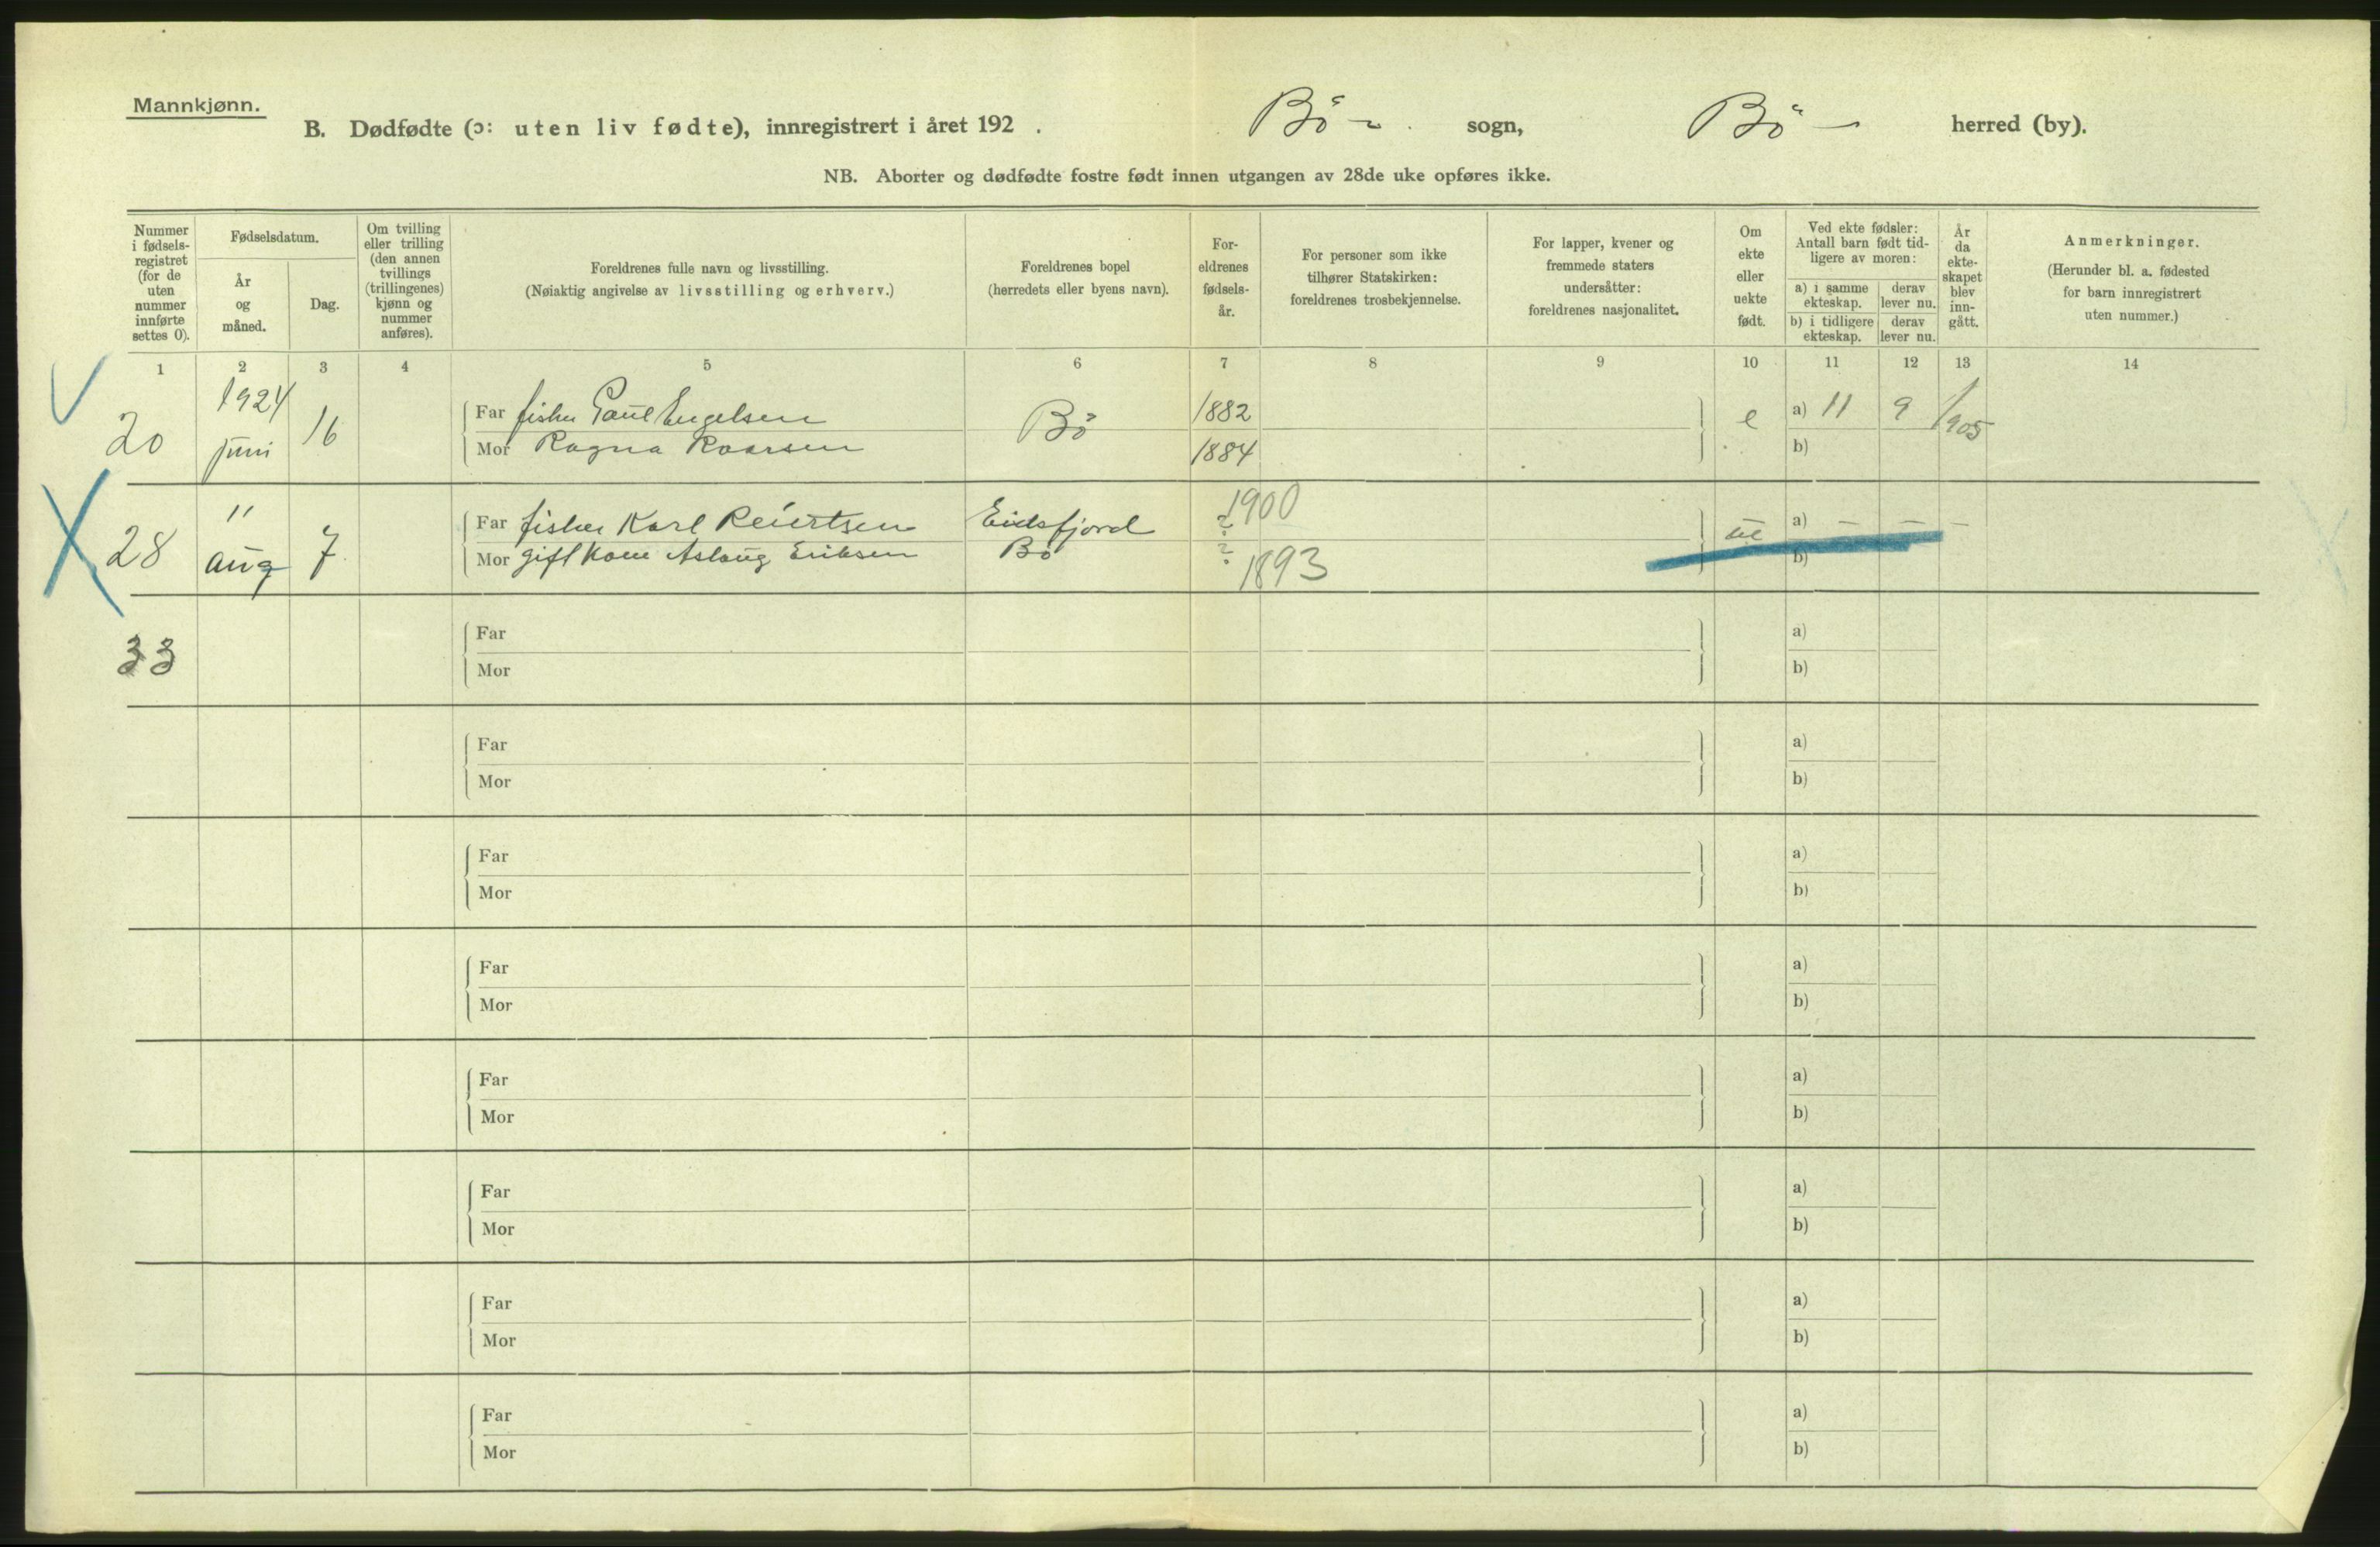 Mannkjønn.
B. Dødfødte (ɔ: uten liv fødte), innregistrert i året 192 . Bö sogn, Bö herred (by).
NB. Aborter og dødfødte fostre født innen utgangen av 28de uke opføres ikke.
Nummer
i fødsels-
registret
(for de
uten
nummer
innførte
settes 0).
Fødselsdatum.
År
og
måned.
Dag.
Om tvilling
eller trilling
(den annen
tvillings
(trillingenes)
kjønn og
nummer
anføres).
Foreldrenes fulle navn og livsstilling.
(Nøiaktig angivelse av livsstilling og erhverv.)
Foreldrenes bopel
(herredets eller byens navn).
For-
eldrenes
fødsels-
år.
For personer som ikke
tilhører Statskirken:
foreldrenes trosbekjennelse.
For lapper, kvener og
fremmede staters
undersåtter:
foreldrenes nasjonalitet.
Om
ekte
eller
uekte
født.
Ved ekte fødsler:
Antall barn født tid-
ligere av moren:
a) i samme
ekteskap.
derav
lever nu.
b) i tidligere
ekteskap.
derav
lever nu.
År
da
ekte-
skapet
blev
inn-
gått.
Anmerkninger.
(Herunder bl. a. fødested
for barn innregistrert
uten nummer.)
1 2 3 4 5 6 7 8 9 10 11 12 13 14
20 1924 juni 16
Far fisker Paul Engelsen Bö 1882 e a) 11 9 1905
Mor Ragna Roarsen 1884 b)
28 " aug 7
Far fisker Karl Reiertsen Eidsfjord ? 1900 ue a) — — —
Mor gift kone Aslaug Eriksen Bö ? 1893 b)
33
Far a)
Mor b)
Far a)
Mor b)
Far a)
Mor b)
Far a)
Mor b)
Far a)
Mor b)
Far a)
Mor b)
Far a)
Mor b)
Far a)
Mor b)